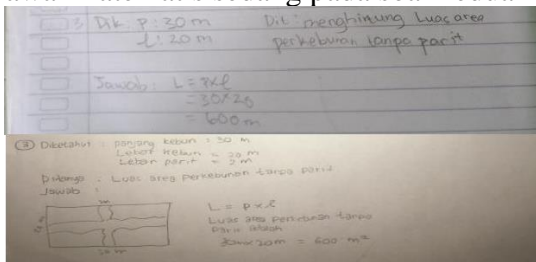 3. Dik: P: 30 m Dit: menghitung Luas area
l: 20 m perkebunan tanpa parit
Jawab: L = p x l
= 30 x 20
= 600 m
3 Diketahui: panjang kebun = 30 m
Lebar kebun = 20 m
Lebar parit = 2 m
Ditanya : Luas area perkebunan tanpa parit
Jawab :
L = p x l
Luas area perkebunan tanpa
parit adalah
30m x 20m = 600 m²
30 m